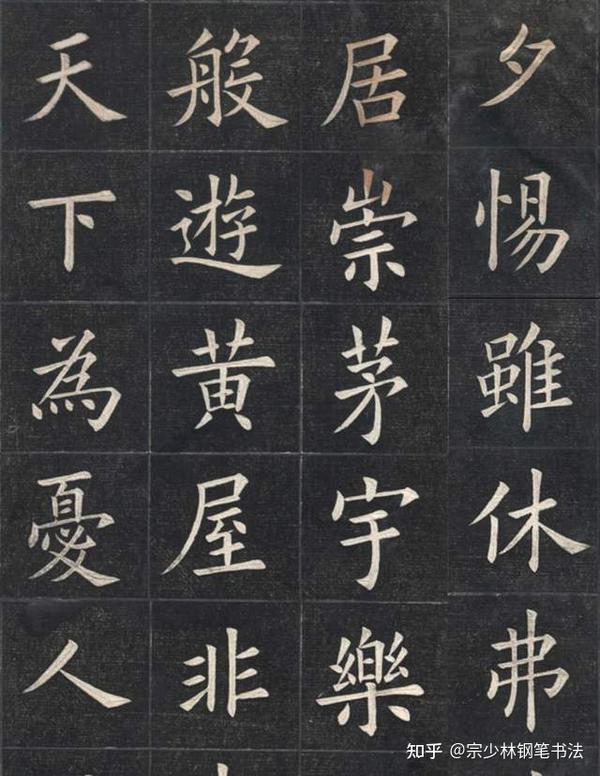 夕惕雖休弗
居崇茅宇樂
般遊黄屋非
天下為憂人
知乎 @宗少林钢笔书法